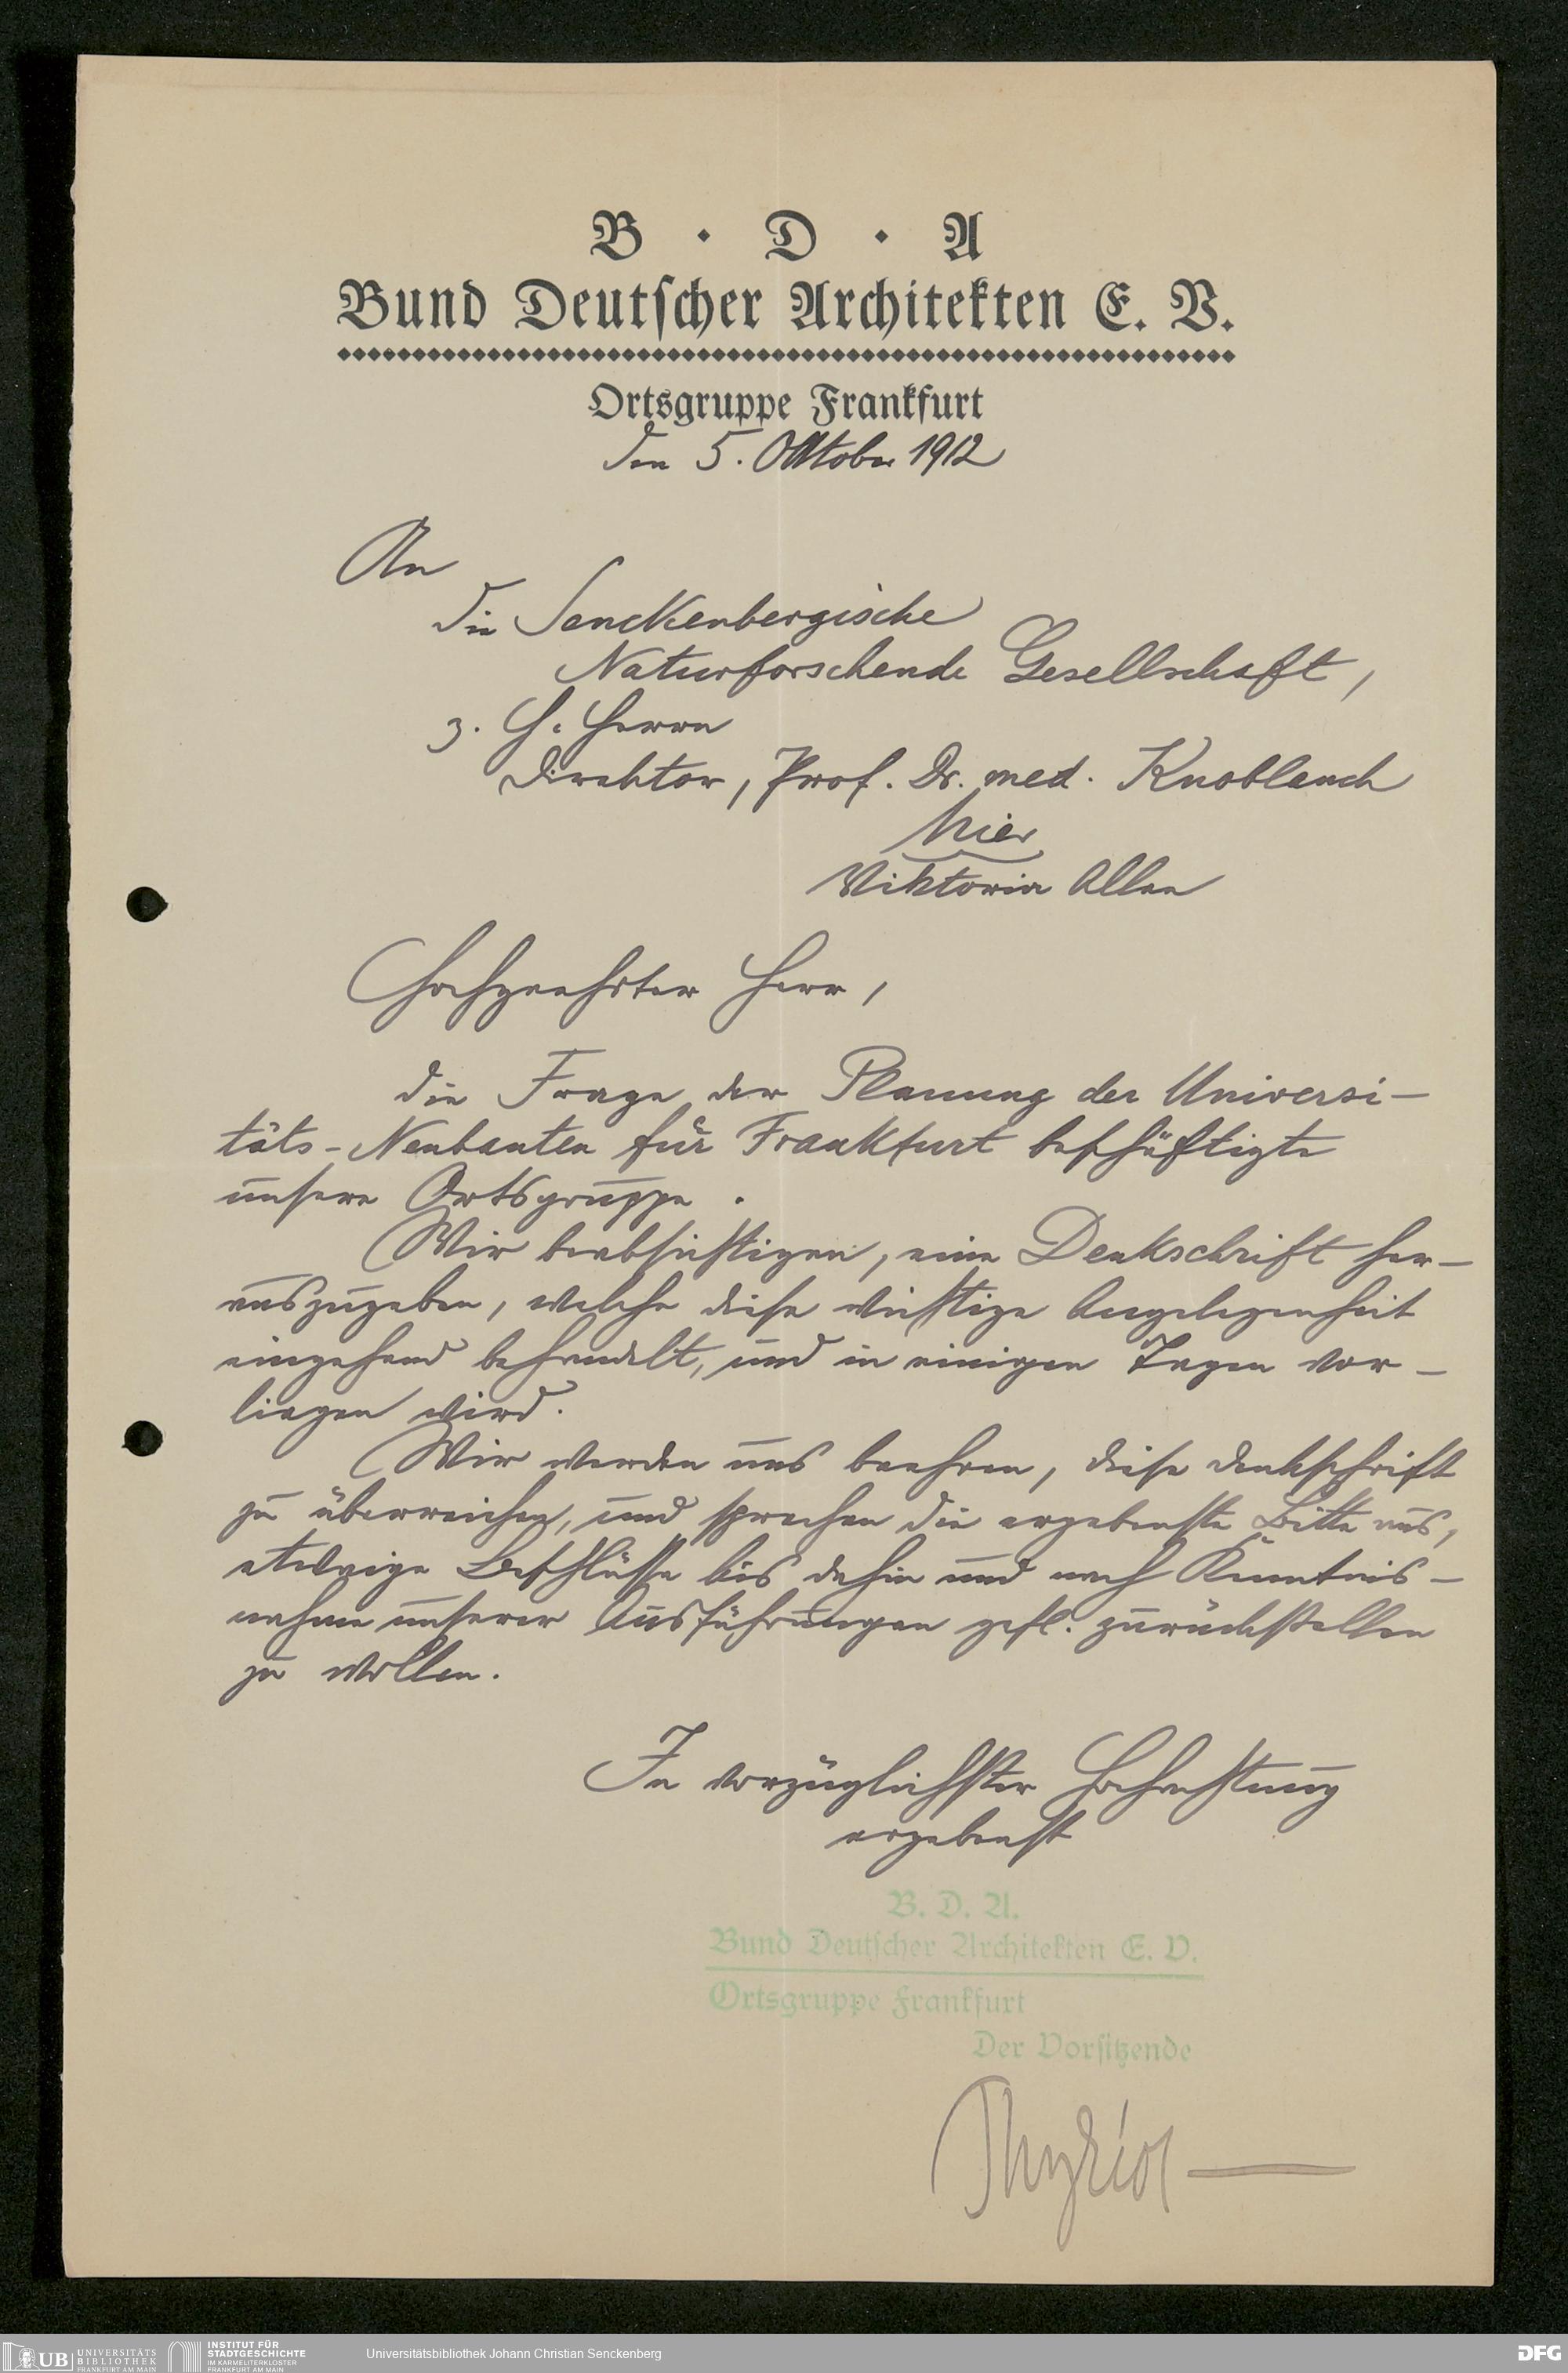 B · D · A
Bund Deutscher Architekten E. V.
Ortsgruppe Frankfurt
den 5. Oktober 1912
An
die Senckenbergische
Naturforschende Gesellschaft,
z. H. Herrn
Direktor, Prof. Dr. med. Knoblauch
hier
Viktoria Allee
Hochgeehrter Herr,
die Frage der Planung der Universi-
täts-Neubauten für Frankfurt beschäftigte
unsere Ortsgruppe.
Wir beabsichtigen, eine Denkschrift her-
auszugeben, welche diese wichtige Angelegenheit
eingehend behandelt, und in einigen Tagen vor-
liegen wird.
Wir werden uns beehren, diese Denkschrift
zu überreichen, und sprechen die ergebenste Bitte aus,
etwaige Beschlüsse bis dahin und nach Kenntnis-
nahme unserer Ausführungen gefl. zurückstellen
zu wollen.
In vorzüglichster Hochachtung
ergebenst
B. D. A.
Bund Deutscher Architekten E. V.
Ortsgruppe Frankfurt
Der Vorsitzende
UB UNIVERSITÄTS
BIBLIOTHEK
FRANKFURT AM MAIN
INSTITUT FÜR
STADTGESCHICHTE
IM KARMELITERKLOSTER
FRANKFURT AM MAIN
Universitätsbibliothek Johann Christian Senckenberg
DFG